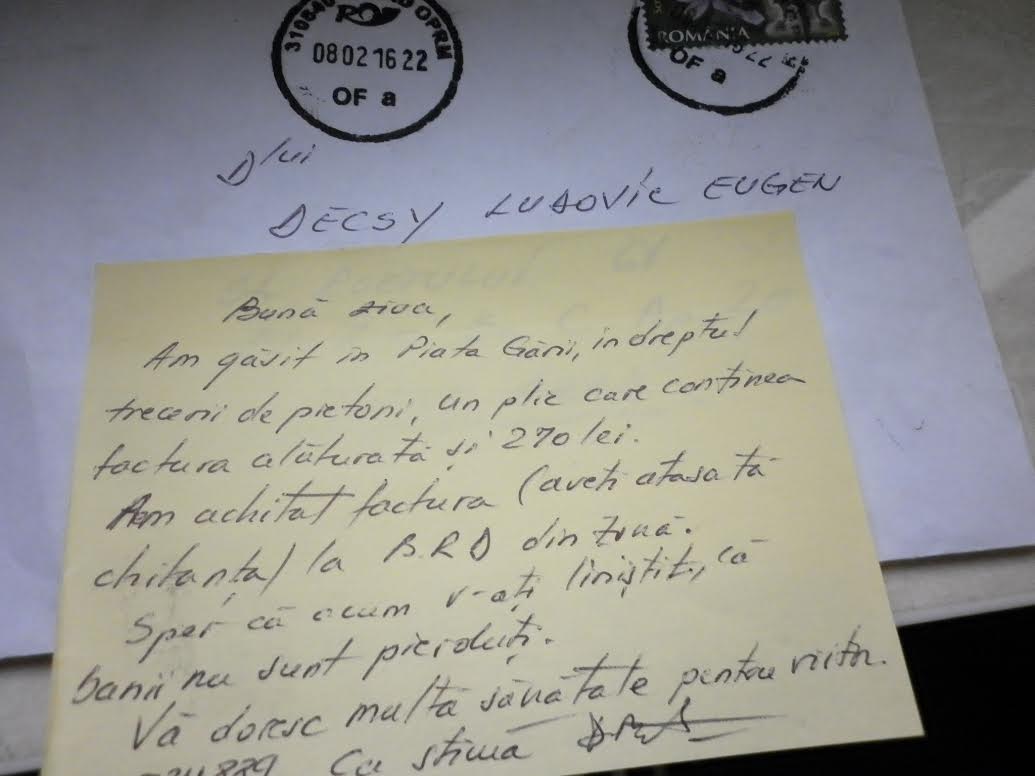 310840
OPRM
08 02 16 22
OF a
ROMANIA
22
OF a
D'lui
DECSY LUDOVIC EUGEN
Bună ziua,
Am găsit în Piata Gării, in dreptul
trecerii de pietoni, un plic care continea
factura alăturată și 270 lei.
Am achitat factura (aveti atasată
chitanța) la B.R.D din zonă.
Sper că acum v-ați liniștit, că
banii nu sunt pierduți.
Vă doresc multă sănătate pentru viitor.
Cu stimă